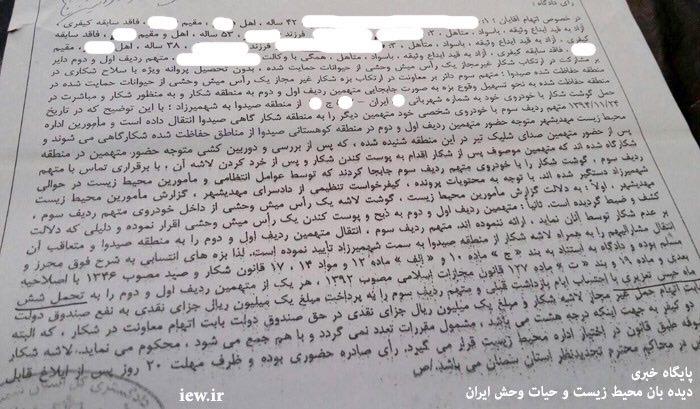 رای دادگاه :
در خصوص اتهام آقایان : ۱- ۴۲ ساله ، اهل ، مقیم ، فاقد سابقه کیفری ،
آزاد به قید ایداع وثیقه ، باسواد ، متاهل ، ۲- فرزند ۵۳ ساله ، اهل و مقیم ، فاقد سابقه
کیفری ، آزاد به قید ایداع وثیقه ، باسواد ، متاهل ، فرزند ۳۸ ساله ، اهل ، مقیم
، فاقد سابقه کیفری ، آزاد به قید ایداع وثیقه ، باسواد ، متاهل ، همگی با وکالت متهم ردیف اول و دوم دایر
بر مشارکت در ارتکاب بزه شکار غیرمجاز یک رأس میش وحشی از حیوانات حمایت شده ، بدون تحصیل پروانه ویژه با سلاح شکاری در
منطقه حفاظت شده صیدوا ؛ متهم سوم دائر بر معاونت در ارتکاب بزه شکار غیر مجاز یک رأس میش وحشی از حیوانات حمایت شده در
منطقه حفاظت شده به نحو تسهیل وقوع بزه به صورت جابجایی متهمین ردیف اول و دوم به منطقه شکار و به منظور شکار و مباشرت در
حمل گوشت شکار با خودروی خود به شماره شهربانی ایران – ج از منطقه صیدوا به شهمیرزاد ؛ با این توضیح که در تاریخ
۱۳۹۴/۱۱/۲۴ متهم ردیف سوم با خودروی شخصی خود متهمین دیگر را به منطقه صیدوا انتقال داده است و مأمورین اداره
محیط زیست مهدیشهر متوجه حضور متهمین ردیف اول و دوم در منطقه کوهستانی صیدوا از مناطق حفاظت شده شکارگاهی می شوند و
پس از حضور متهمین صدای شلیک تیر در این منطقه شنیده شده ، که پس از بررسی و دوربین کشی متوجه حضور متهمین در منطقه
شکارگاه شده اند که متهمین موصوف پس از شکار اقدام به پوست کندن شکار و پس از خرد کردن لاشه آن ، با برقراری تماس با متهم
ردیف سوم ، گوشت شکار را با خودروی متهم ردیف سوم جابجا کردند که توسط عوامل انتظامی و مأمورین محیط زیست در حوالی
شهمیرزاد دستگیر شده اند. با توجه به محتویات پرونده ، کیفرخواست تنظیمی از دادسرای مهدیشهر ، گزارش مأمورین محیط زیست
مهدیشهر ، اولاً : به دلالت گزارش مأمورین محیط زیست ، گوشت لاشه یک رأس میش وحشی از داخل خودروی متهم ردیف سوم ،
کشف و ضبط گردیده است. ثانیاً : متهمین ردیف اول و دوم به ذبح و پوست کندن یک رأس میش وحشی اقرار نموده و دلیلی که دلالت
بر عدم شکار توسط آنان نماید ، ارائه ننموده اند. متهم ردیف سوم ، انتقال متهمین ردیف اول و دوم را به منطقه صیدوا و متعاقب آن
انتقال مشارالیهم را به همراه لاشه شکار از منطقه صیدوا به سمت شهمیرزاد تأیید نموده است. لذا بزه های انتسابی به شرح فوق محرز و
مسلم بوده و دادگاه به استناد به بند «ج» ماده ۱۰ و «الف» ماده ۱۲ و مواد ۱۴ ، ۱۷ قانون شکار و صید مصوب ۱۳۴۶ با اصلاحیه
بعدی و ماده ۱۹ و بند «ت» ماده ۱۲۷ قانون مجازات اسلامی مصوب ۱۳۹۲ ، هر یک از متهمین ردیف اول و دوم را به تحمل شش
ماه حبس تعزیری با احتساب ایام بازداشت قبلی و متهم ردیف سوم را به پرداخت مبلغ یک میلیون ریال جزای نقدی به نفع صندوق دولت
بابت اتهام حمل غیر مجاز لاشه شکار و مبلغ یک میلیون ریال جزای نقدی در حق صندوق دولت بابت اتهام معاونت در شکار ، که البته
دو کیفر به جهت اینکه درجه هشت می باشد ، مشمول مقررات تعدد نمی گردد و با هم جمع می شود ، محکوم می نماید. لاشه شکار
طبق قانون در اختیار اداره محیط زیست قرار می گیرد. رأی صادره حضوری بوده و ظرف مهلت ۲۰ روز پس از ابلاغ قابل
در محاکم محترم تجدیدنظر استان سمنان می باشد./ص
پایگاه خبری
دیده بان محیط زیست و حیات وحش ایران
iew.ir